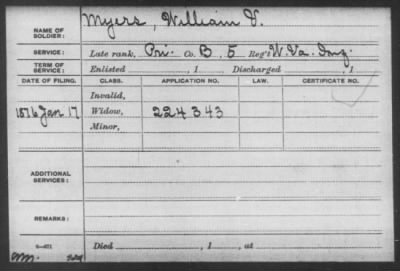 NAME OF SOLDIER: Myers, William V.
SERVICE: Late rank, Pri. Co. B, 5 Reg't W. Va. Inf.
TERM OF SERVICE: Enlisted , 1 Discharged , 1
DATE OF FILING. CLASS. APPLICATION NO. LAW. CERTIFICATE NO.
Invalid,
1876 Jan 17 Widow, 224343
Minor,
ADDITIONAL SERVICES:
REMARKS:
Died , 1 , at